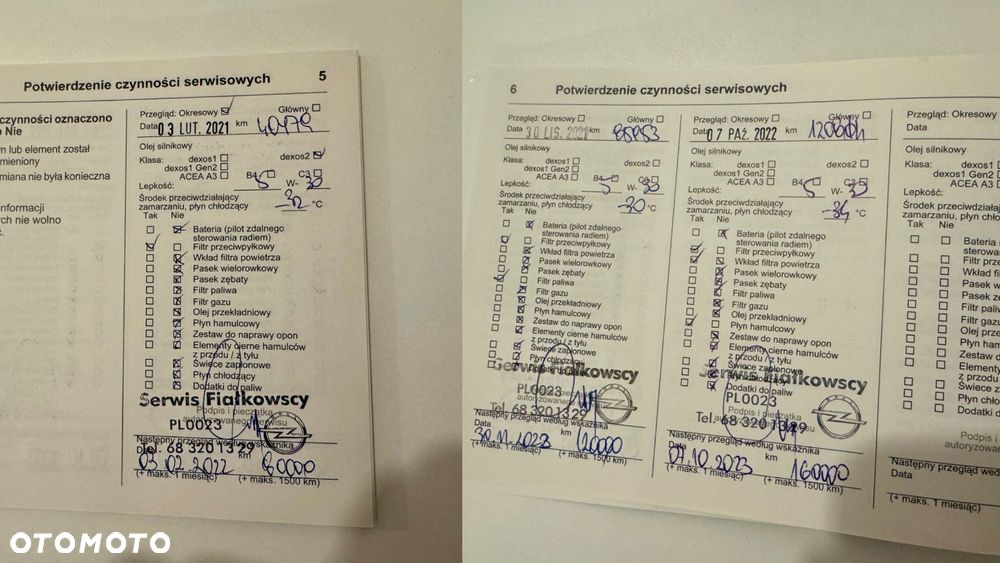 Potwierdzenie czynności serwisowych 5
czynności oznaczono
o Nie
n lub element został
mieniony
miana nie była konieczna
nformacji
ych nie wolno
c.
Przegląd: Okresowy Główny
Data 03 LUT. 2021 km 40179
Olej silnikowy
Klasa: dexos1 dexos2
dexos1 Gen2
ACEA A3 B4 C3
Lepkość: 5 W- 30
Środek przeciwdziałający
zamarzaniu, płyn chłodzący -32 °C
Tak Nie
Bateria (pilot zdalnego
sterowania radiem)
Filtr przeciwpyłkowy
Wkład filtra powietrza
Pasek wielorowkowy
Pasek zębaty
Filtr paliwa
Filtr gazu
Olej przekładniowy
Płyn hamulcowy
Zestaw do naprawy opon
Elementy cierne hamulców
z przodu / z tyłu
Świece zapłonowe
Płyn chłodzący
Dodatki do paliw
Serwis Fiałkowscy
PL0023
Podpis i pieczątka
autoryzowanego serwisu
Tel. 68 320 13 29
Następny przegląd według wskaźnika
Data 03 02 2022 km 80000
(+ maks. 1 miesiąc) (+ maks. 1500 km)
6 Potwierdzenie czynności serwisowych
Przegląd: Okresowy Główny
Data 30 LIS. 2021 km
Olej silnikowy
Klasa: dexos1 dexos2
dexos1 Gen2
ACEA A3 B4 C3
Lepkość: 5 W- 30
Środek przeciwdziałający
zamarzaniu, płyn chłodzący -30 °C
Tak Nie
Bateria (pilot zdalnego
sterowania radiem)
Filtr przeciwpyłkowy
Wkład filtra powietrza
Pasek wielorowkowy
Pasek zębaty
Filtr paliwa
Filtr gazu
Olej przekładniowy
Płyn hamulcowy
Zestaw do naprawy opon
Elementy cierne hamulców
z przodu / z tyłu
Świece zapłonowe
Płyn chłodzący
Serwis Fiałkowscy
PL0023
autoryzowanego
Tel. 68 320 13 29
Następny przegląd według wskaźnika
Data 30.11.2023 km 120000
(+ maks. 1 miesiąc) (+ maks. 1500 km)
Przegląd: Okresowy Główny
Data 07 PAŹ. 2022 km
Olej silnikowy
Klasa: dexos1 dexos2
dexos1 Gen2
ACEA A3 B4 C3
Lepkość: 5 W- 30
Środek przeciwdziałający
zamarzaniu, płyn chłodzący -34 °C
Tak Nie
Bateria (pilot zdalnego
sterowania radiem)
Filtr przeciwpyłkowy
Wkład filtra powietrza
Pasek wielorowkowy
Pasek zębaty
Filtr paliwa
Filtr gazu
Olej przekładniowy
Płyn hamulcowy
Zestaw do naprawy opon
Elementy cierne hamulców
z przodu / z tyłu
Świece zapłonowe
Płyn chłodzący
Dodatki do paliw
Serwis Fiałkowscy
PL0023
Podpis i pieczątka
autoryzowanego serwisu
Tel. 68 320 13 29
Następny przegląd według wskaźnika
Data 07.10.2023 km 160000
(+ maks. 1 miesiąc) (+ maks. 1500 km)
Przegląd: Okresowy
Data
Olej silnikowy
Klasa: dexos1
dexos1 Gen2
ACEA A3
Lepkość:
Środek przeciwdziałając
zamarzaniu, płyn chłodz
Tak Nie
Bateria (
sterowania
Filtr prze
Wkład fi
Pasek w
Pasek z
Filtr pali
Filtr gaz
Olej prz
Płyn ha
Zestaw
Element
z przodu
Świece
Płyn chł
Dodatki
Podpis i
autoryzowa
Następny przegląd wed
Data
(+ maks. 1 miesiąc)
OTOMOTO